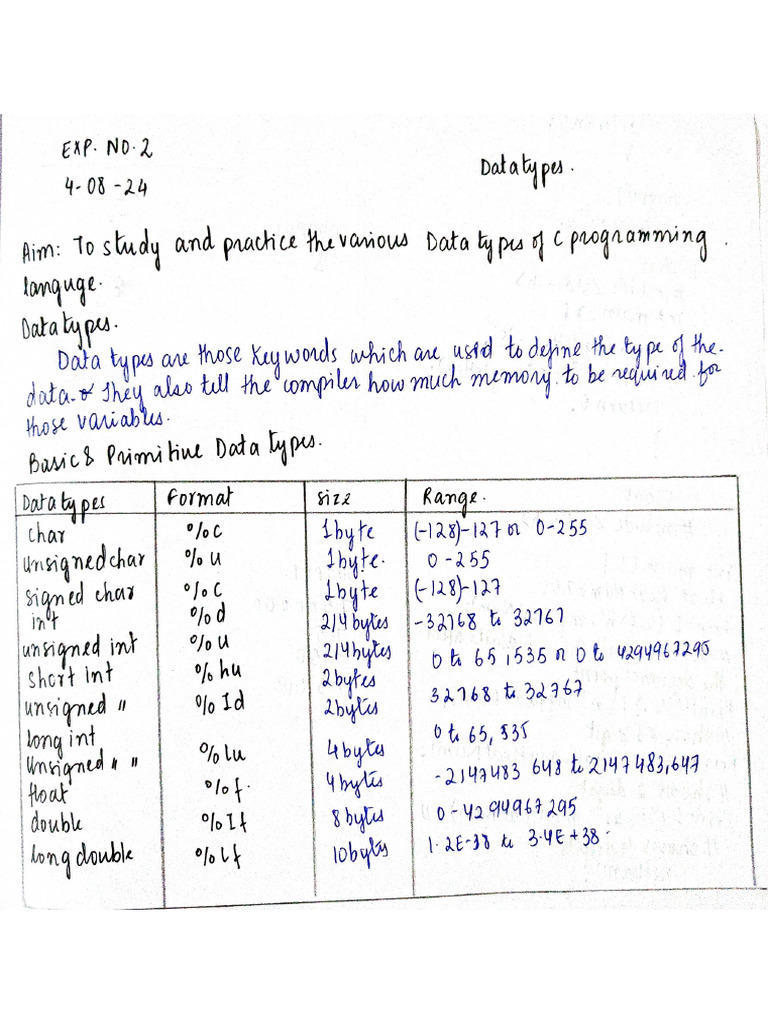 EXP. NO. 2
Datatypes.
4-08-24
Aim: To study and practice the various Data types of C programming
languge.
Datatypes.
Data types are those Keywords which are used to define the type of the
data. & They also tell the compiler how much memory to be required for
those variables.
Basic & Primitive Data types.
Datatypes Format Size Range.
char %c 1byte (-128)-127 or 0-255
unsigned char %u 1byte. 0-255
signed char %c 1byte (-128)-127
int %d 2/4bytes -32768 to 32767
unsigned int %u 2/4bytes 0 to 65,535 or 0 to 4294967295
short int %hu 2bytes 32768 to 32767
unsigned " %Id 2bytes 0 to 65,535
long int
Unsigned " " %lu 4bytes -2147483 648 to 2147483,647
float %f. 4bytes 0-4294967295
double %If 8bytes 1.2E-38 to 3.4E+38
long double %Lf 10bytes